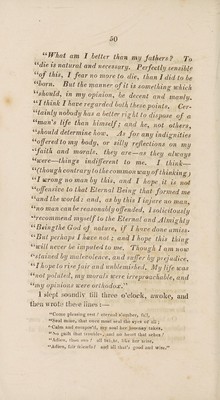 50
"What am I better than my fathers? To
"die is natural and necessary. Perfectly sensible
"of this, I fear no more to die, than I did to be
"born. But the manner of it is something which
"should, in my opinion, be decent and manly.
"I think I have regarded both these points. Cer-
"tainly nobody has a better right to dispose of a
"man's life than himself; and he, not others,
"should determine how. As for any indignities
"offered to my body, or silly reflections on my
"faith and morals, they are—as they always
"were—things indifferent to me. I think—
"(though contrary to the common way of thinking)
"I wrong no man by this, and I hope it is not
"offensive to that Eternal Being that formed me
"and the world: and, as by this I injure no man,
"no man can be reasonably offended, I solicitously
"recommend myself to the Eternal and Almighty
"Being the God of nature, if I have done amiss.
"But perhaps I have not: and I hope this thing
"will never be imputed to me. Though I am now
"stained by malevolence, and suffer by prejudice,
"I hope to rise fair and unblemished. My life was
"not polluted, my morals were irreproachable, and
"my opinions were orthodox."
I slept soundly till three o'clock, awoke, and
then wrote these lines:—
"Come pleasing rest! eternal slumber, fall,
"Seal mine, that once must seal the eyes of all;
"Calm and compos'd, my soul her journey takes,
"No guilt that troubles, and no heart that aches!
"Adieu, thou sun! all bright, like her arise,
"Adieu, fair friends! and all that's good and wise."